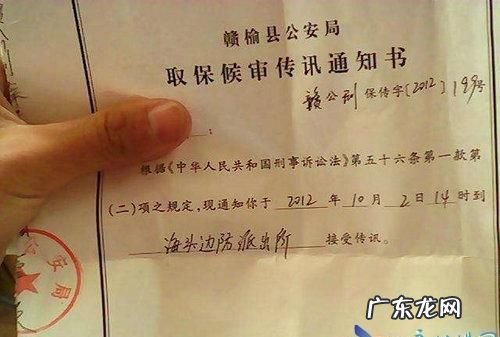 赣榆县公安局
取保候审传讯通知书
赣公刑 保传字〔2012〕199号
:
根据《中华人民共和国刑事诉讼法》第五十六条第一款第
(二)项之规定,现通知你于 2012 年 10 月 2 日 14 时到
海头边防派出所 接受传讯。
公安局
广东龙网